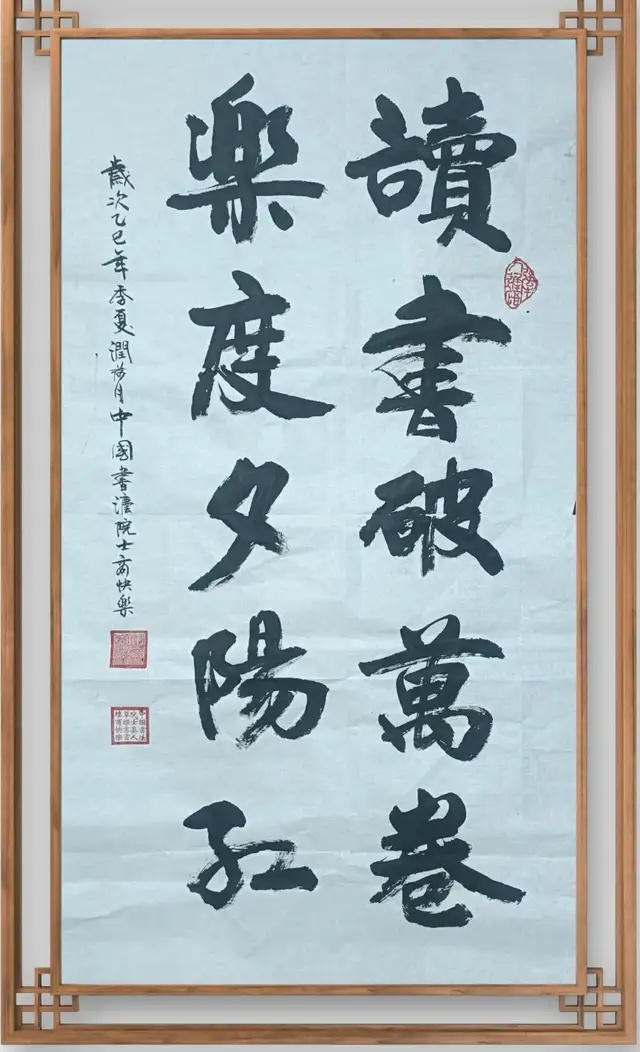 讀書破萬卷
樂度夕陽紅
歲次乙巳年季夏潤荷月中國書法院士商快樂